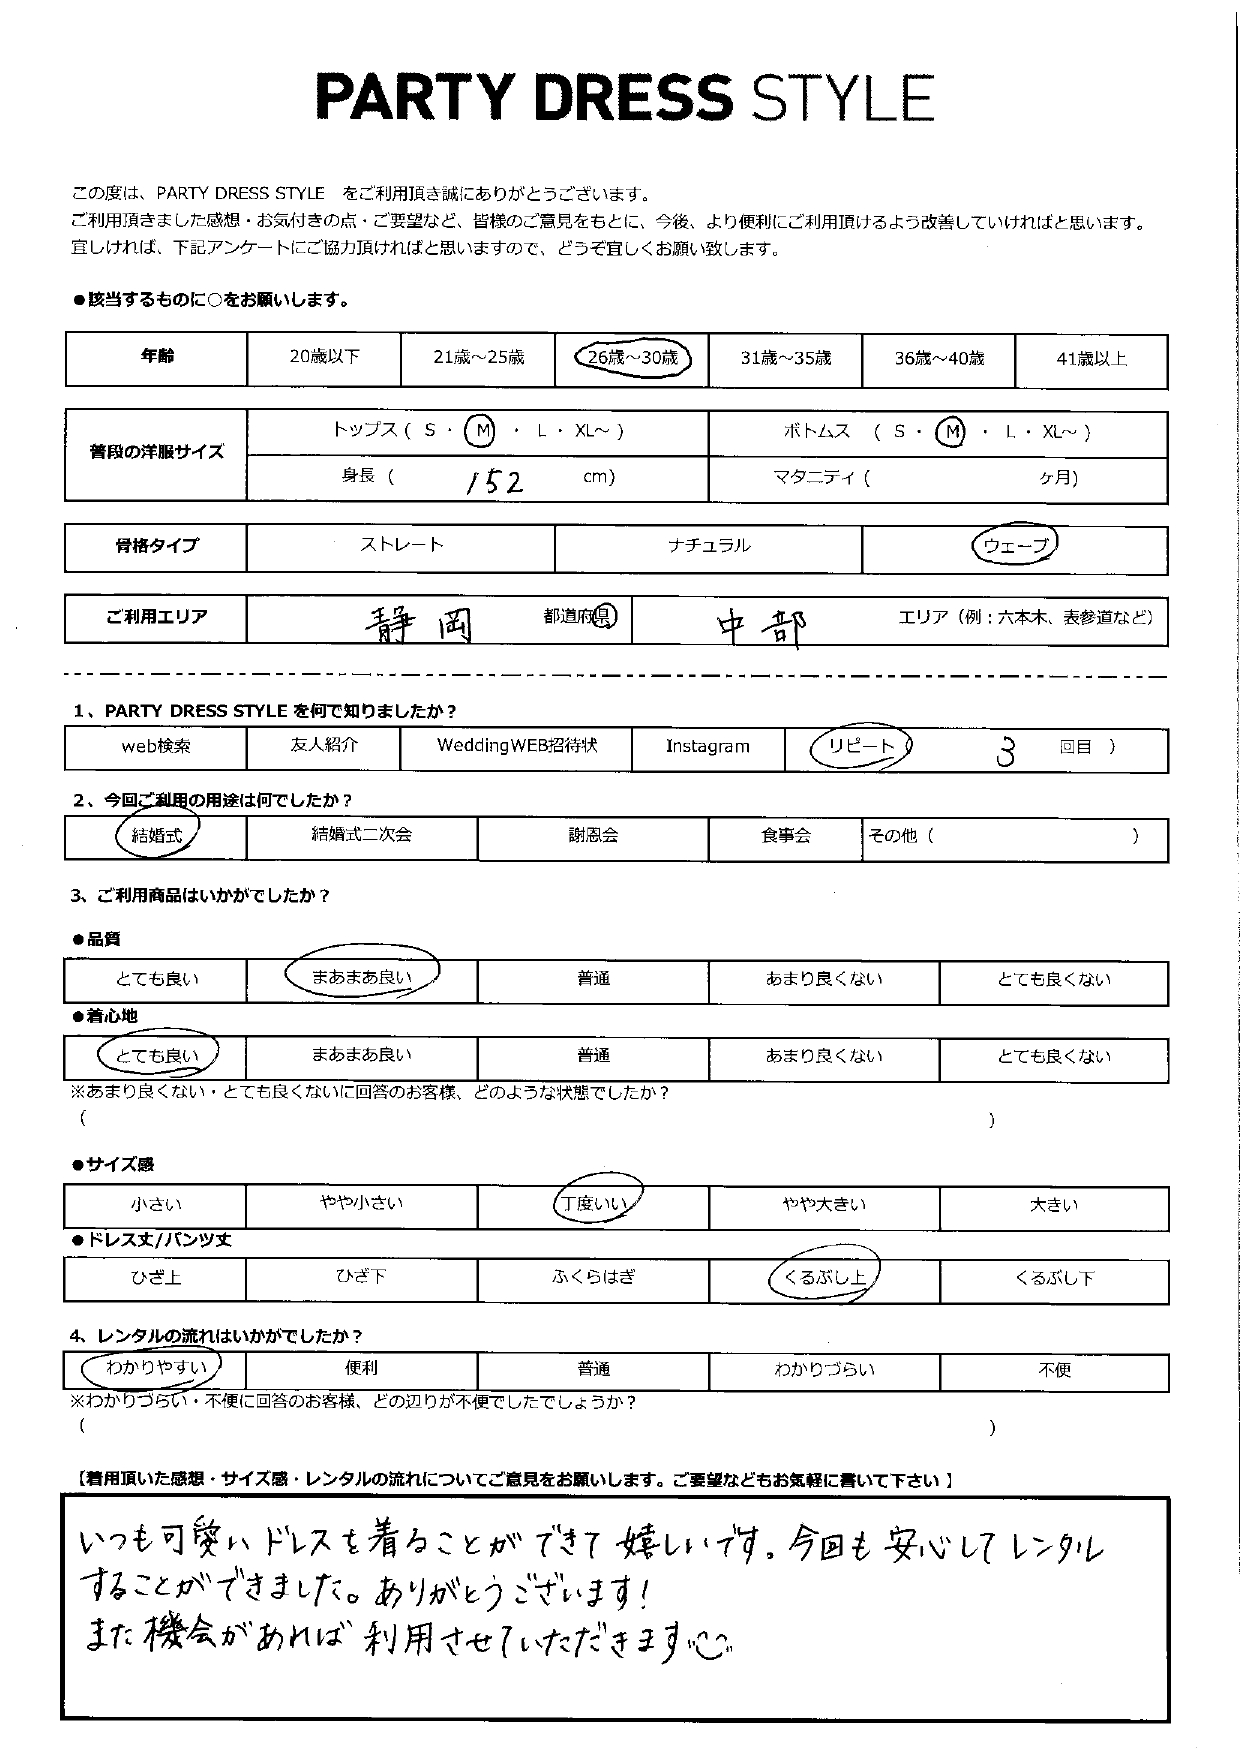 PARTY DRESS STYLE
この度は、PARTY DRESS STYLE　をご利用頂き誠にありがとうございます。
ご利用頂きました感想・お気付きの点・ご要望など、皆様のご意見をもとに、今後、より便利にご利用頂けるよう改善していければと思います。
宜しければ、下記アンケートにご協力頂ければと思いますので、どうぞ宜しくお願い致します。
●該当するものに○をお願いします。
年齢 20歳以下 21歳～25歳 26歳～30歳 31歳～35歳 36歳～40歳 41歳以上
普段の洋服サイズ
トップス ( S ・ M ・ L ・ XL～ ) ボトムス ( S ・ M ・ L ・ XL～ )
身長 ( 152 cm) マタニティ ( ケ月)
骨格タイプ ストレート ナチュラル ウェーブ
ご利用エリア 静岡 都道府県 中部 エリア（例：六本木、表参道など）
1、PARTY DRESS STYLE を何で知りましたか？
web検索 友人紹介 WeddingWEB招待状 Instagram リピート 3 回目 )
2、今回ご利用の用途は何でしたか？
結婚式 結婚式二次会 謝恩会 食事会 その他 ( )
3、ご利用商品はいかがでしたか？
●品質
とても良い まあまあ良い 普通 あまり良くない とても良くない
●着心地
とても良い まあまあ良い 普通 あまり良くない とても良くない
※あまり良くない・とても良くないに回答のお客様、どのような状態でしたか？
( )
●サイズ感
小さい やや小さい 丁度いい やや大きい 大きい
●ドレス丈/パンツ丈
ひざ上 ひざ下 ふくらはぎ くるぶし上 くるぶし下
4、レンタルの流れはいかがでしたか？
わかりやすい 便利 普通 わかりづらい 不便
※わかりづらい・不便に回答のお客様、どの辺りが不便でしたでしょうか？
( )
【着用頂いた感想・サイズ感・レンタルの流れについてご意見をお願いします。ご要望などもお気軽に書いて下さい】
いつも可愛いドレスを着ることができて嬉しいです。今回も安心してレンタル
することができました。ありがとうございます!
また機会があれば利用させていただきます